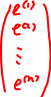 e⁽¹⁾
e⁽²⁾
⋮
e⁽ᵐ⁾